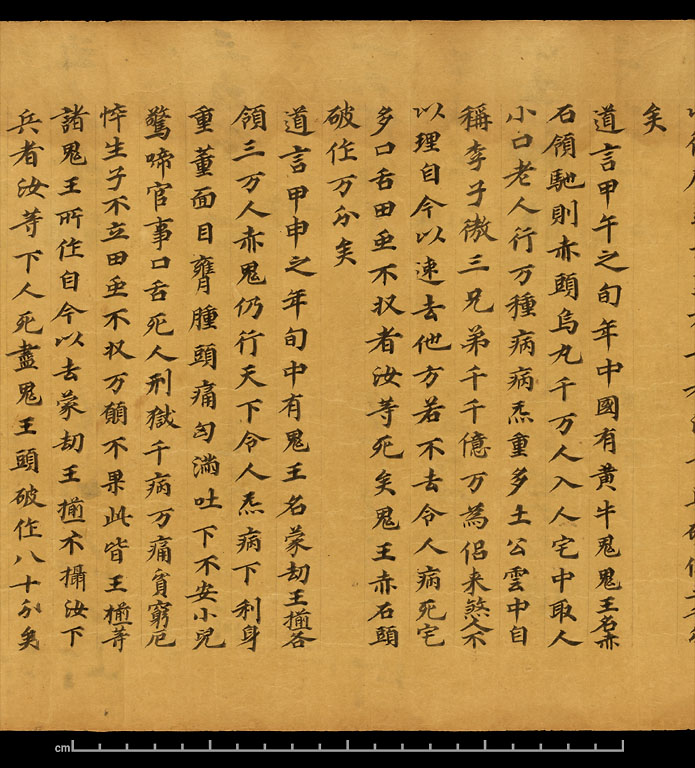 矣
道言甲午之旬年中國有黄牛鬼鬼王名赤
石領馳則赤頭烏丸千万人入人宅中取人
小口老人行万種病病炁重多土公雲中自
稱李子徼三兄弟千千億万為侣来煞人不
以理自今以速去他方若不去令人病死宅
多口舌田𧉬不収者汝等死矣鬼王赤石頭
破作万分矣
道言甲申之年旬中有鬼王名蒙刧王㨤各
領三万人赤鬼仍行天下令人炁病下利身
重董面目癰腫頭痛匈満吐下不安小兒
驚啼官事口舌死人刑獄千病万痛貧窮厄
悴生子不立田𧉬不収万願不果此皆王㨤等
諸鬼王所作自今以去蒙刧王㨤不攝汝下
兵者汝等下人死盡鬼王頭破作八十分矣